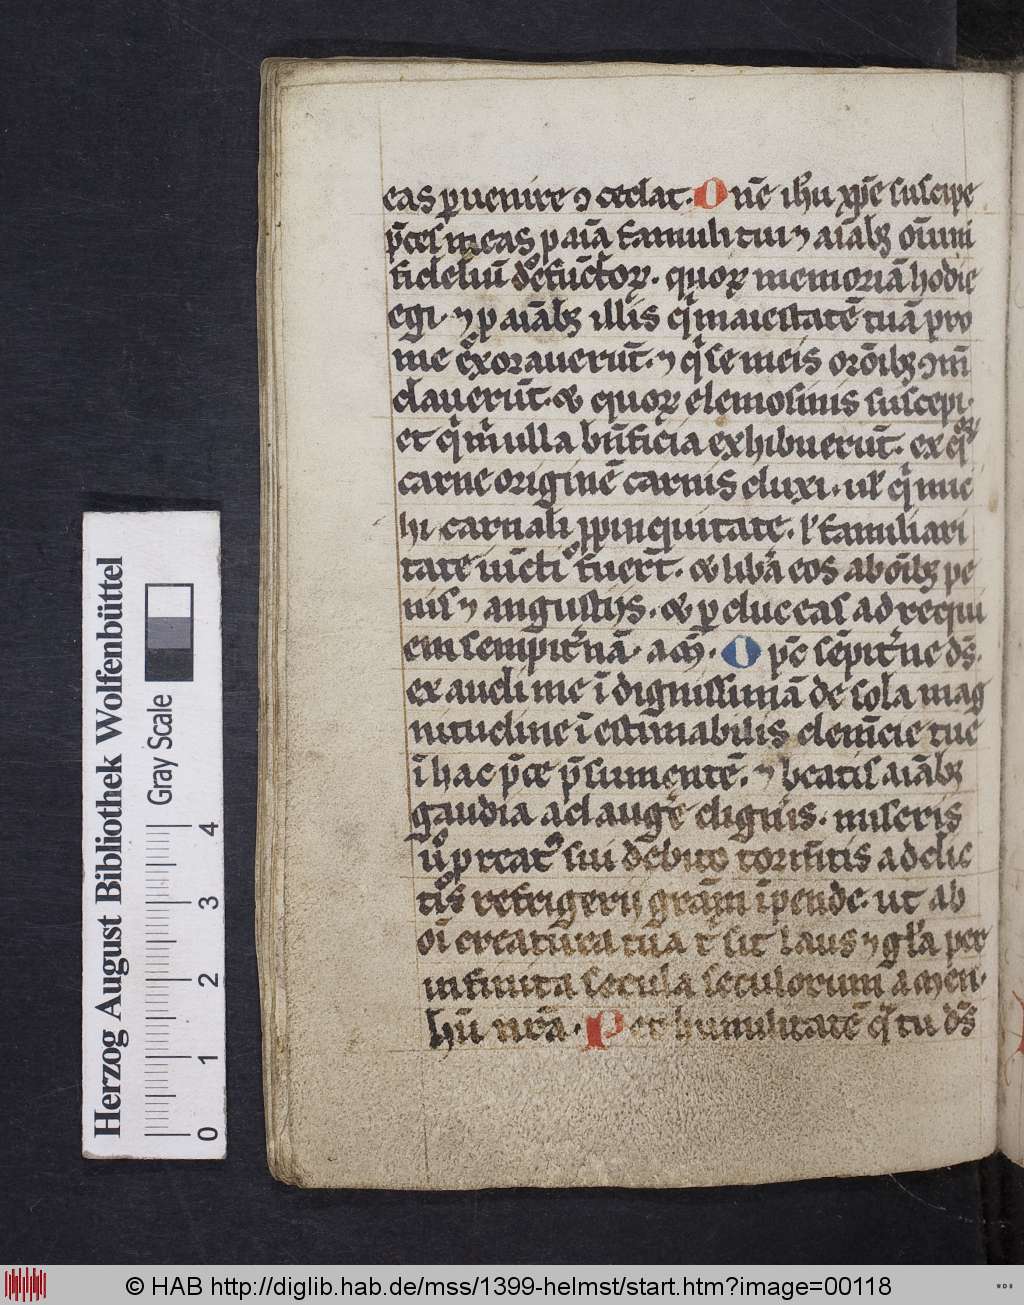 eas ꝑuenire ⁊ cedat. One ihu xp̄e suscipe
p̄ces meas ꝓ aīa famuli tui ⁊ aīabꝫ oīum
fideliū defūctoꝝ. quoꝝ memoriā hodie
egi. ⁊ ꝓ aīabꝫ illis qͥ maiestatē tuā pro
me exorauerūt. ⁊ qͥ se meis orōibꝫ
dauerūt. ⁊ equoꝝ elemosinis suscepi.
et qͥ m ulla bn̄ficia exhibuerūt. ex qͦꝝ
carne originē carnis duxi. ul̓ qͥ mic
hi carnali ꝓpinquitate. l̓ familiari
tate iūcti fuer̄t. ⁊ liba eos ab oībꝫ pe
nis ⁊ angustijs. ⁊ ꝑduc eas ad requi
em sempit̓nā. am̄. O pc sēpit̓ne ds̄.
exaudi me īdignissimā de sola mag
nitudine īestimabilis clemēcie tue
ī hac p̄ce p̄sumentē. ⁊ beatis aīabꝫ
gaudia adauge dignis. miseris
u̾ ꝓ reatꝰ sui debito tormtis addic
tis refrigerij grām īpende. ut ab
oī creatura tua t̄ sit laus ⁊ gl̓a per
infinita secula seculorum amen.
hū nr̄a. Per humilitatē qͣ tu ds̄
Herzog August Bibliothek Wolfenbüttel
Gray Scale
0 1 2 3 4
© HAB http://diglib.hab.de/mss/1399-helmst/start.htm?image=00118